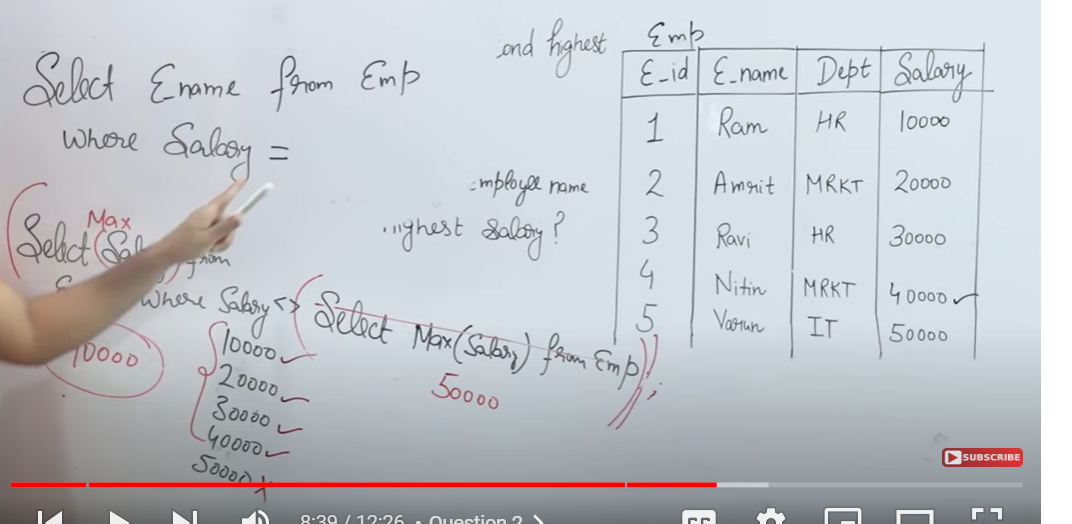 Select Ename from Emp
where Salary =
Max
Select (Sal from
where Salary <> (Select Max(Salary) from Emp));
10000
20000
30000
40000
50000 x
50000
2nd highest
employee name
highest Salary?
Emp
E_id E_name Dept Salary
1 Ram HR 10000
2 Amrit MRKT 20000
3 Ravi HR 30000
4 Nitin MRKT 40000 ✓
5 Varun IT 50000
SUBSCRIBE
8:39 / 12:26 • Question 2 >
CC